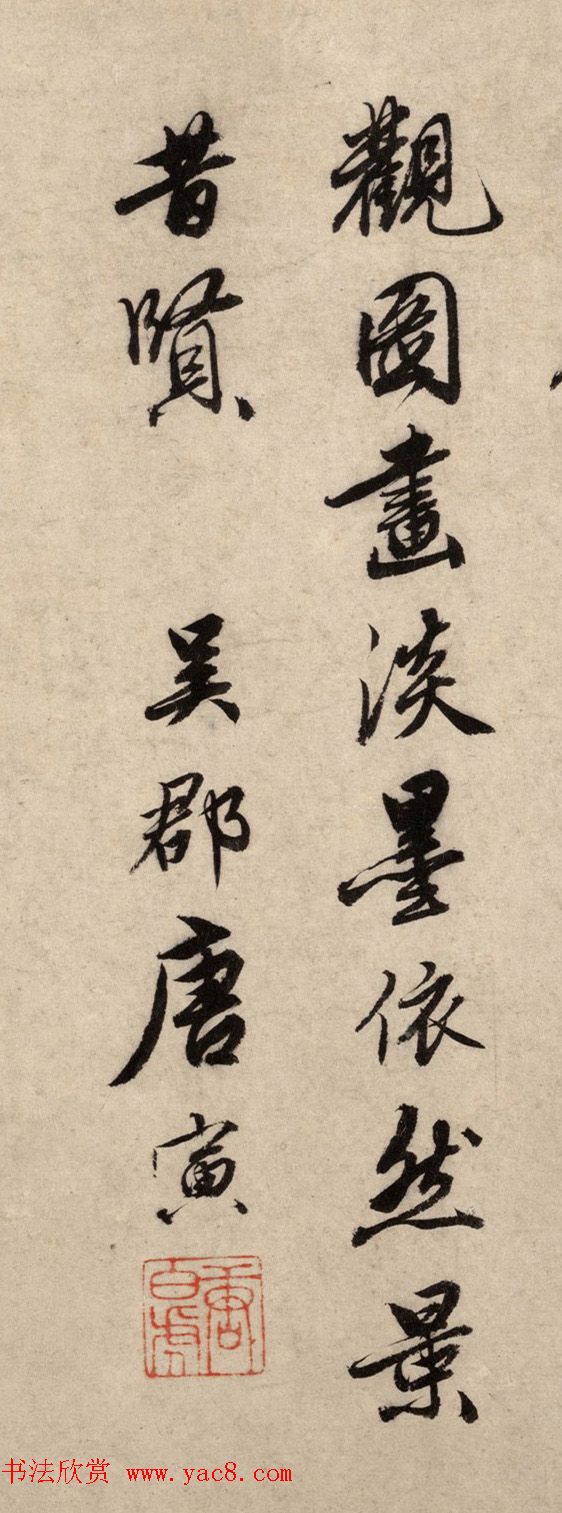 觀圖畫淡墨依然景
昔賢 吳郡唐寅
唐白虎
书法欣赏 www.yac8.com